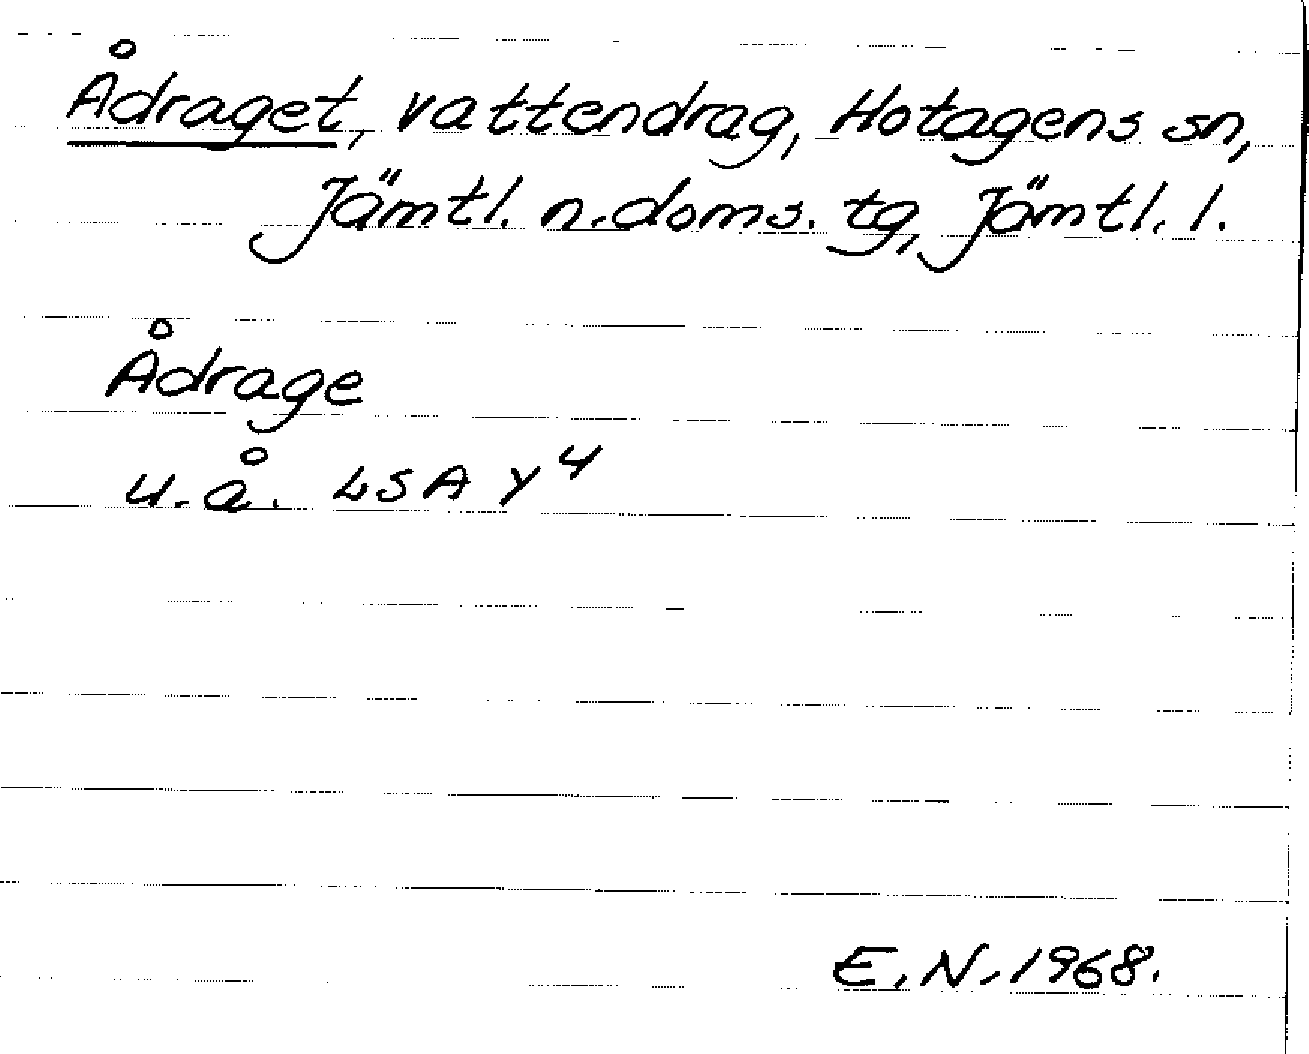 Ådraget, vattendrag, Hotagens sn,
Jämtl. n. doms. tg, Jämtl. l.
Ådrage
u.å. LSA Y4
E.N. 1968.